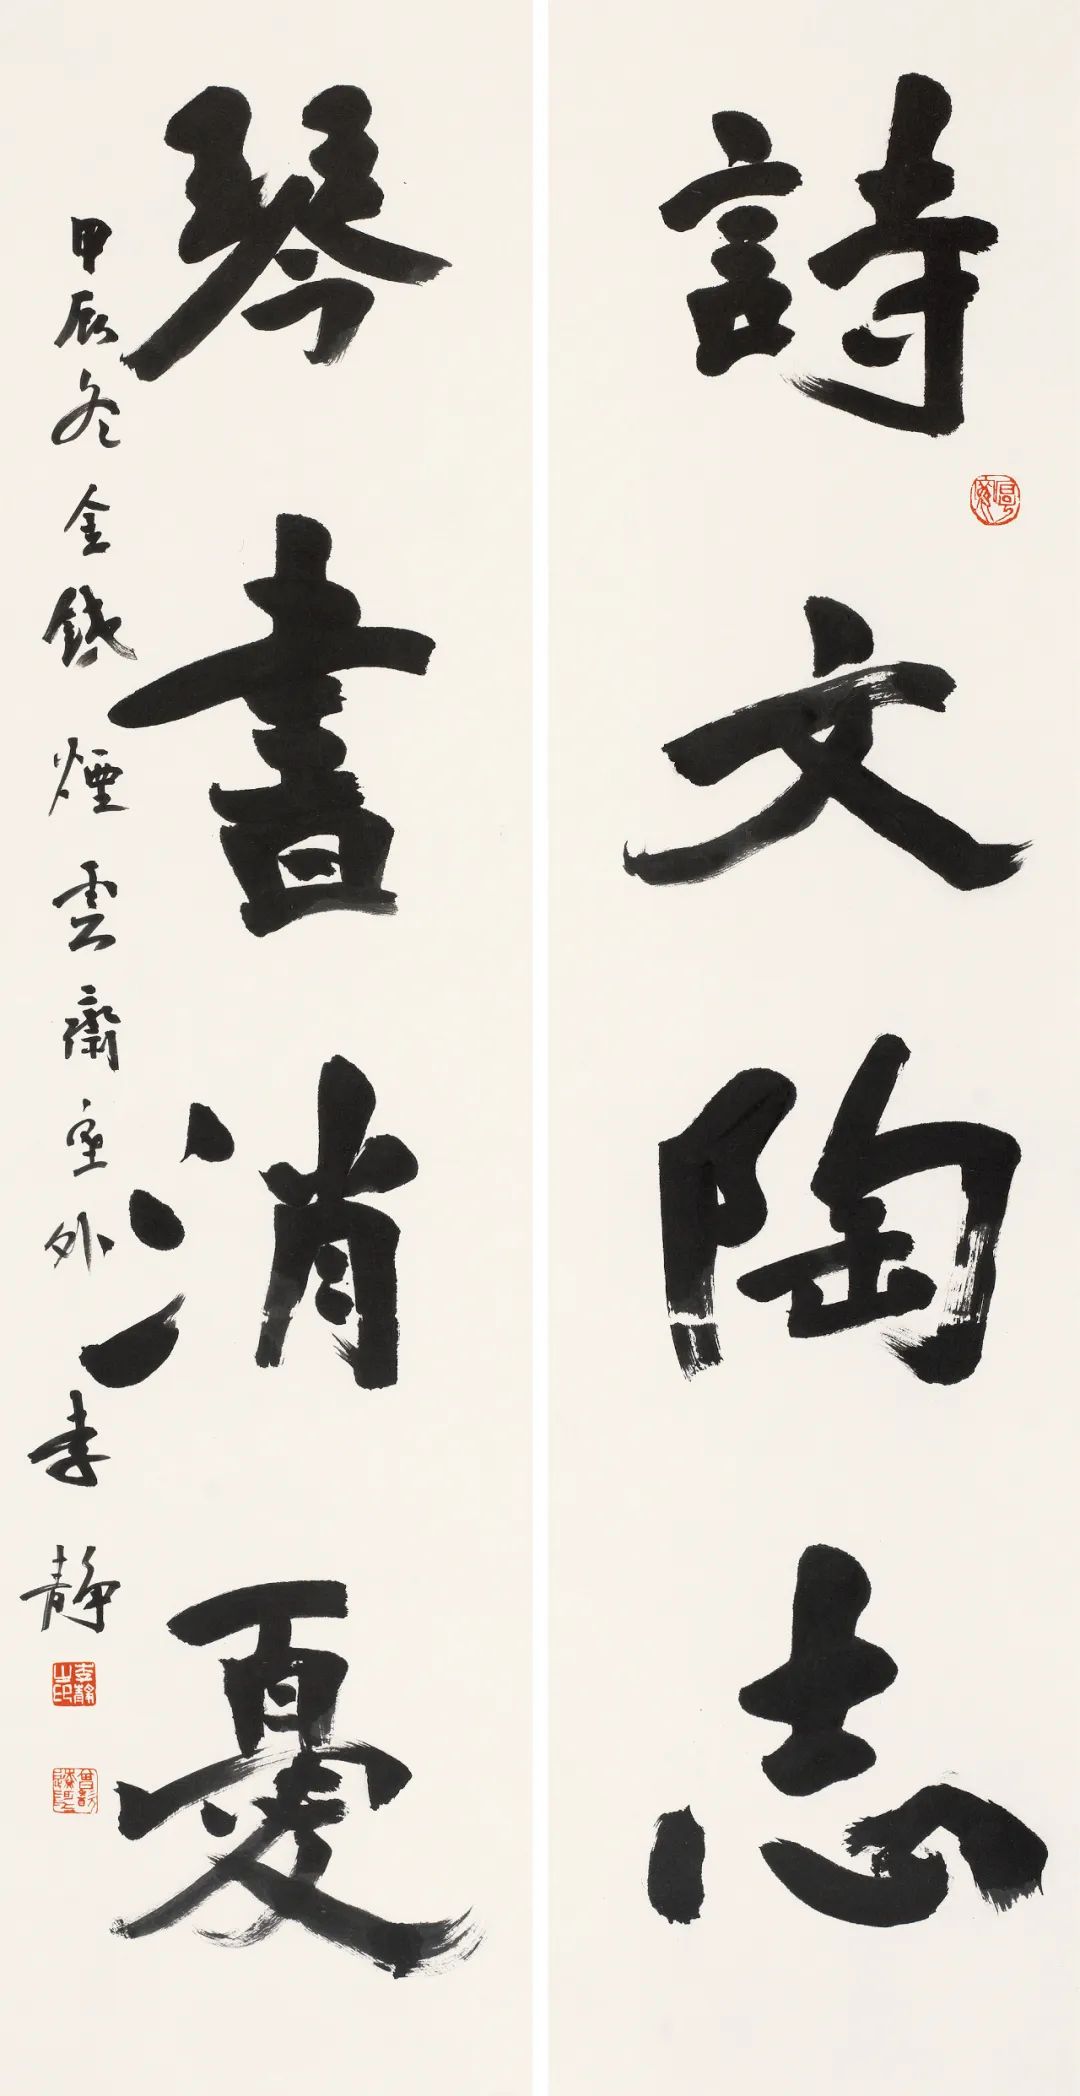 詩文陶志
琴書消憂
甲辰冬金 煙雲齋室外 李静
李靜之印